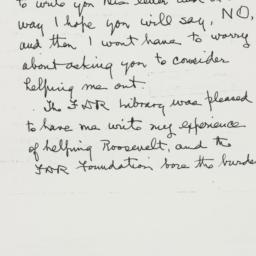 to write you this letter
way I hope you will say, NO,
and then I wont have to worry
about asking you to consider
helping me out.
The FDR Library was pleased
to have me write my experience
of helping Roosevelt, and the
FDR Foundation bore the burde